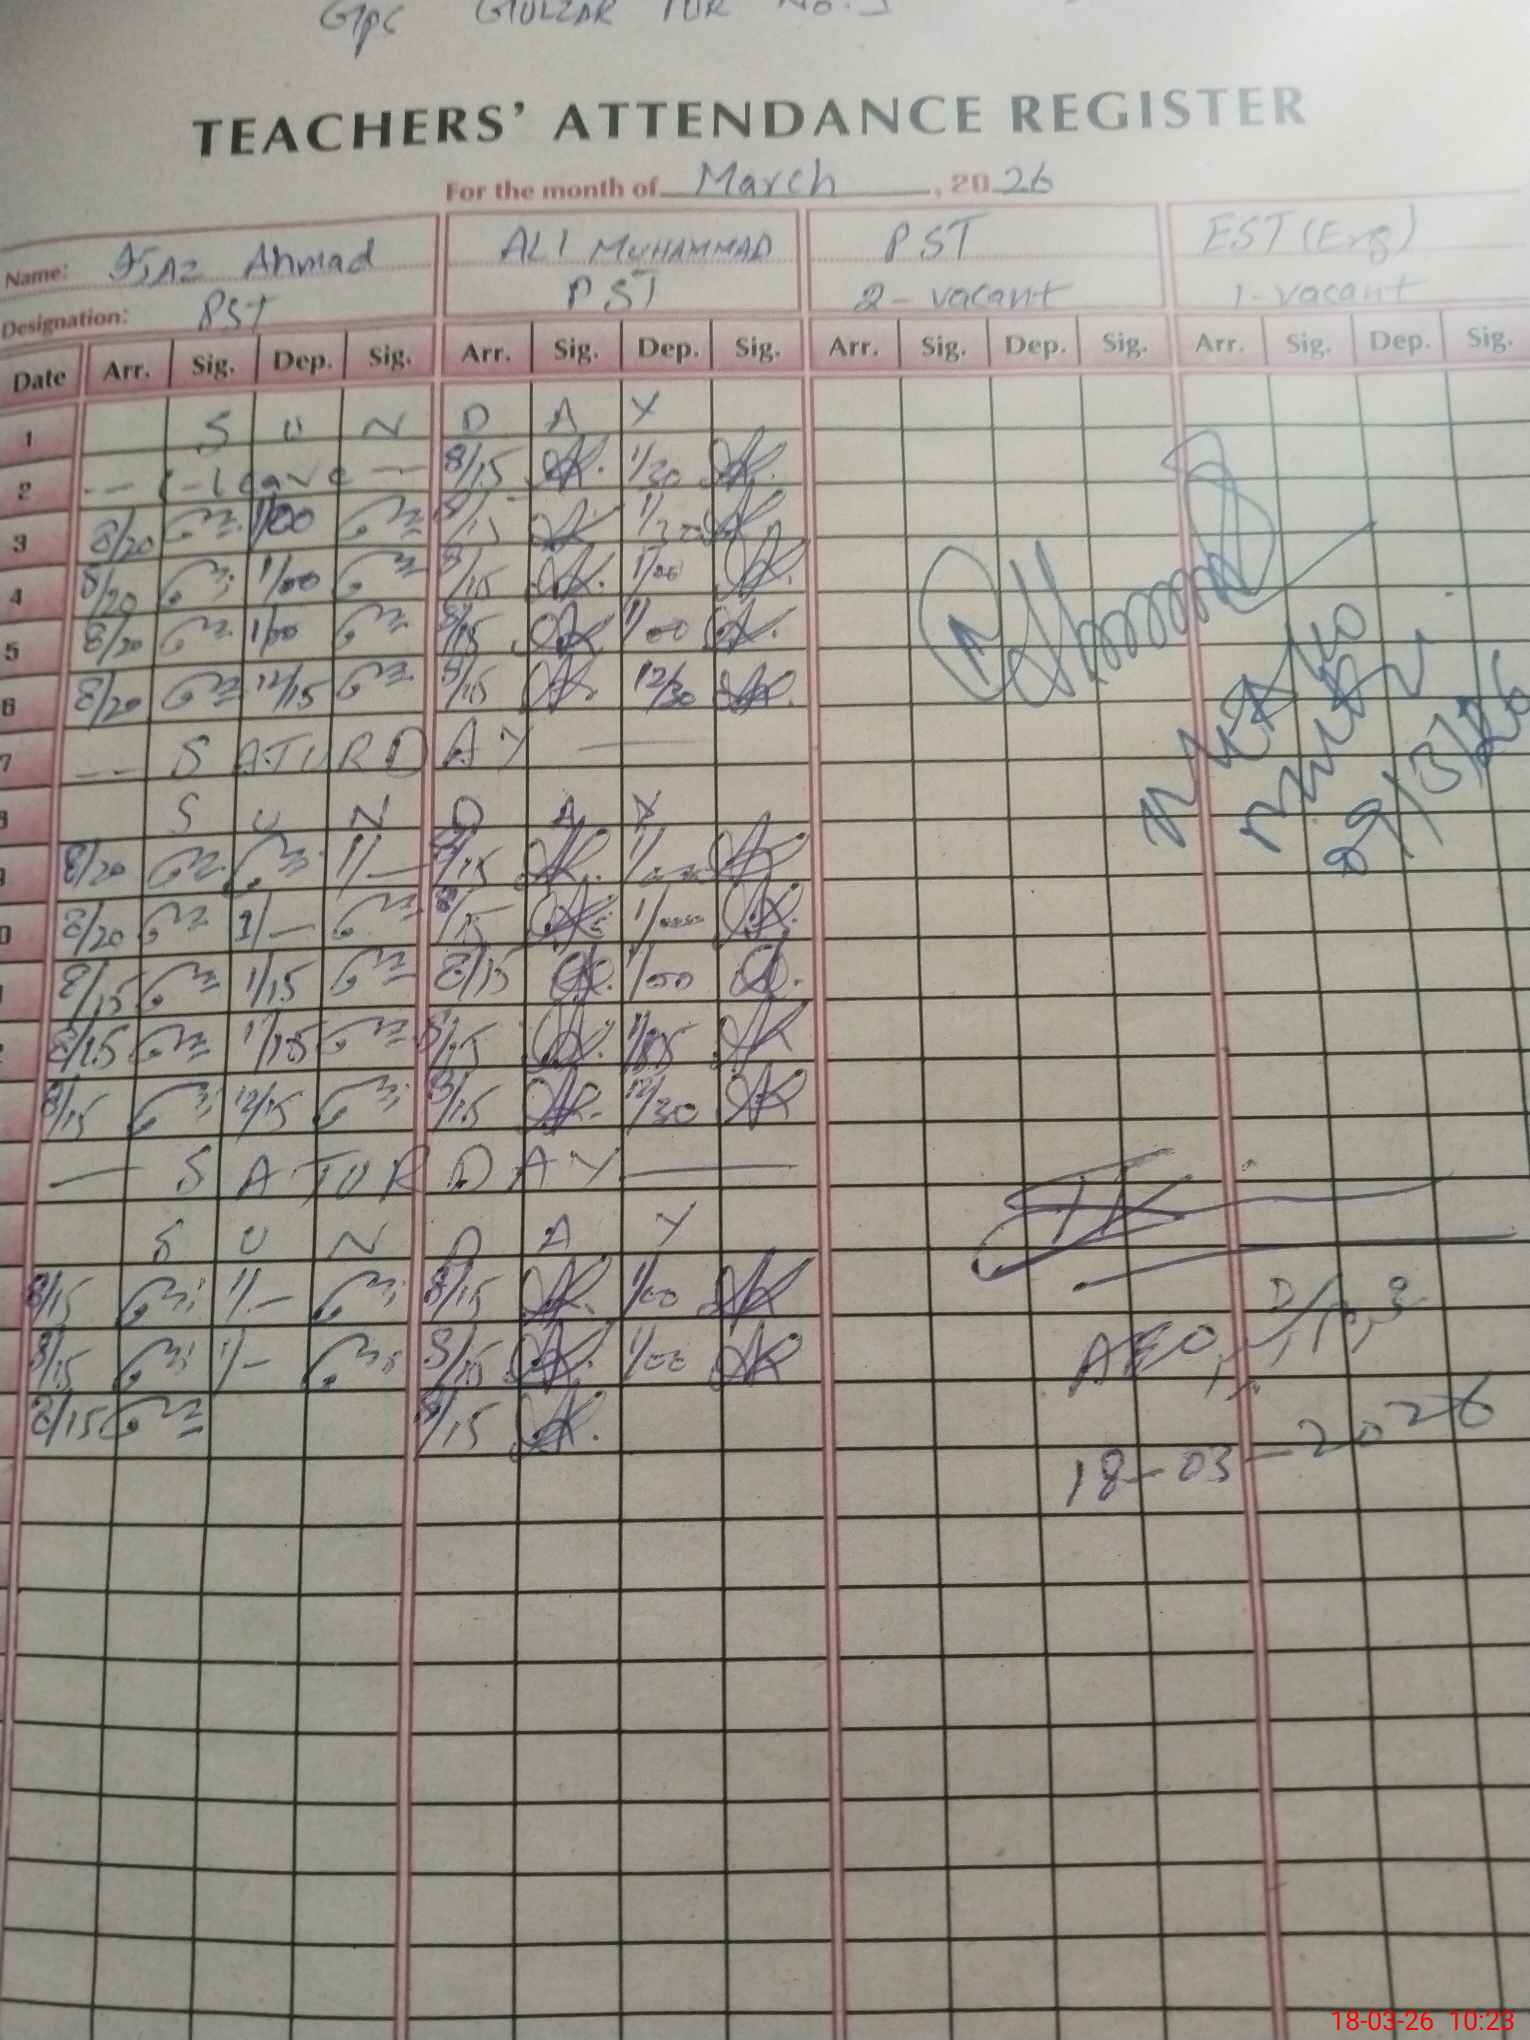 GPS GULZAR PUR No. 1
TEACHERS' ATTENDANCE REGISTER
For the month of March, 2026
Name: Ijaz Ahmad ALI MUHAMMAD PST EST (Eng)
Designation: PST PST 2-vacant 1-vacant
Date Arr. Sig. Dep. Sig. Arr. Sig. Dep. Sig. Arr. Sig. Dep. Sig. Arr. Sig. Dep. Sig.
1 S U N D A Y
2 — leave — 8/15 1/30
3 8/20 1/00
4 8/20 1/00 8/15 1/00
5 8/20 1/00 8/15 1/00
6 8/20 12/15 8/15 12/30
7 — S A T U R D A Y —
S U N D A Y
8/20 1/— 8/15
8/20 1/— 8/15 1/00
8/15 1/15 8/15 1/00
8/15 1/15 8/15
8/15 12/15 8/15 12/30
— S A T U R D A Y —
S U N D A Y
8/15 1/— 8/15 1/00
8/15 1/— 8/15 1/00
8/15 8/15
AEO
18-03-2026
18-03-26 10:23